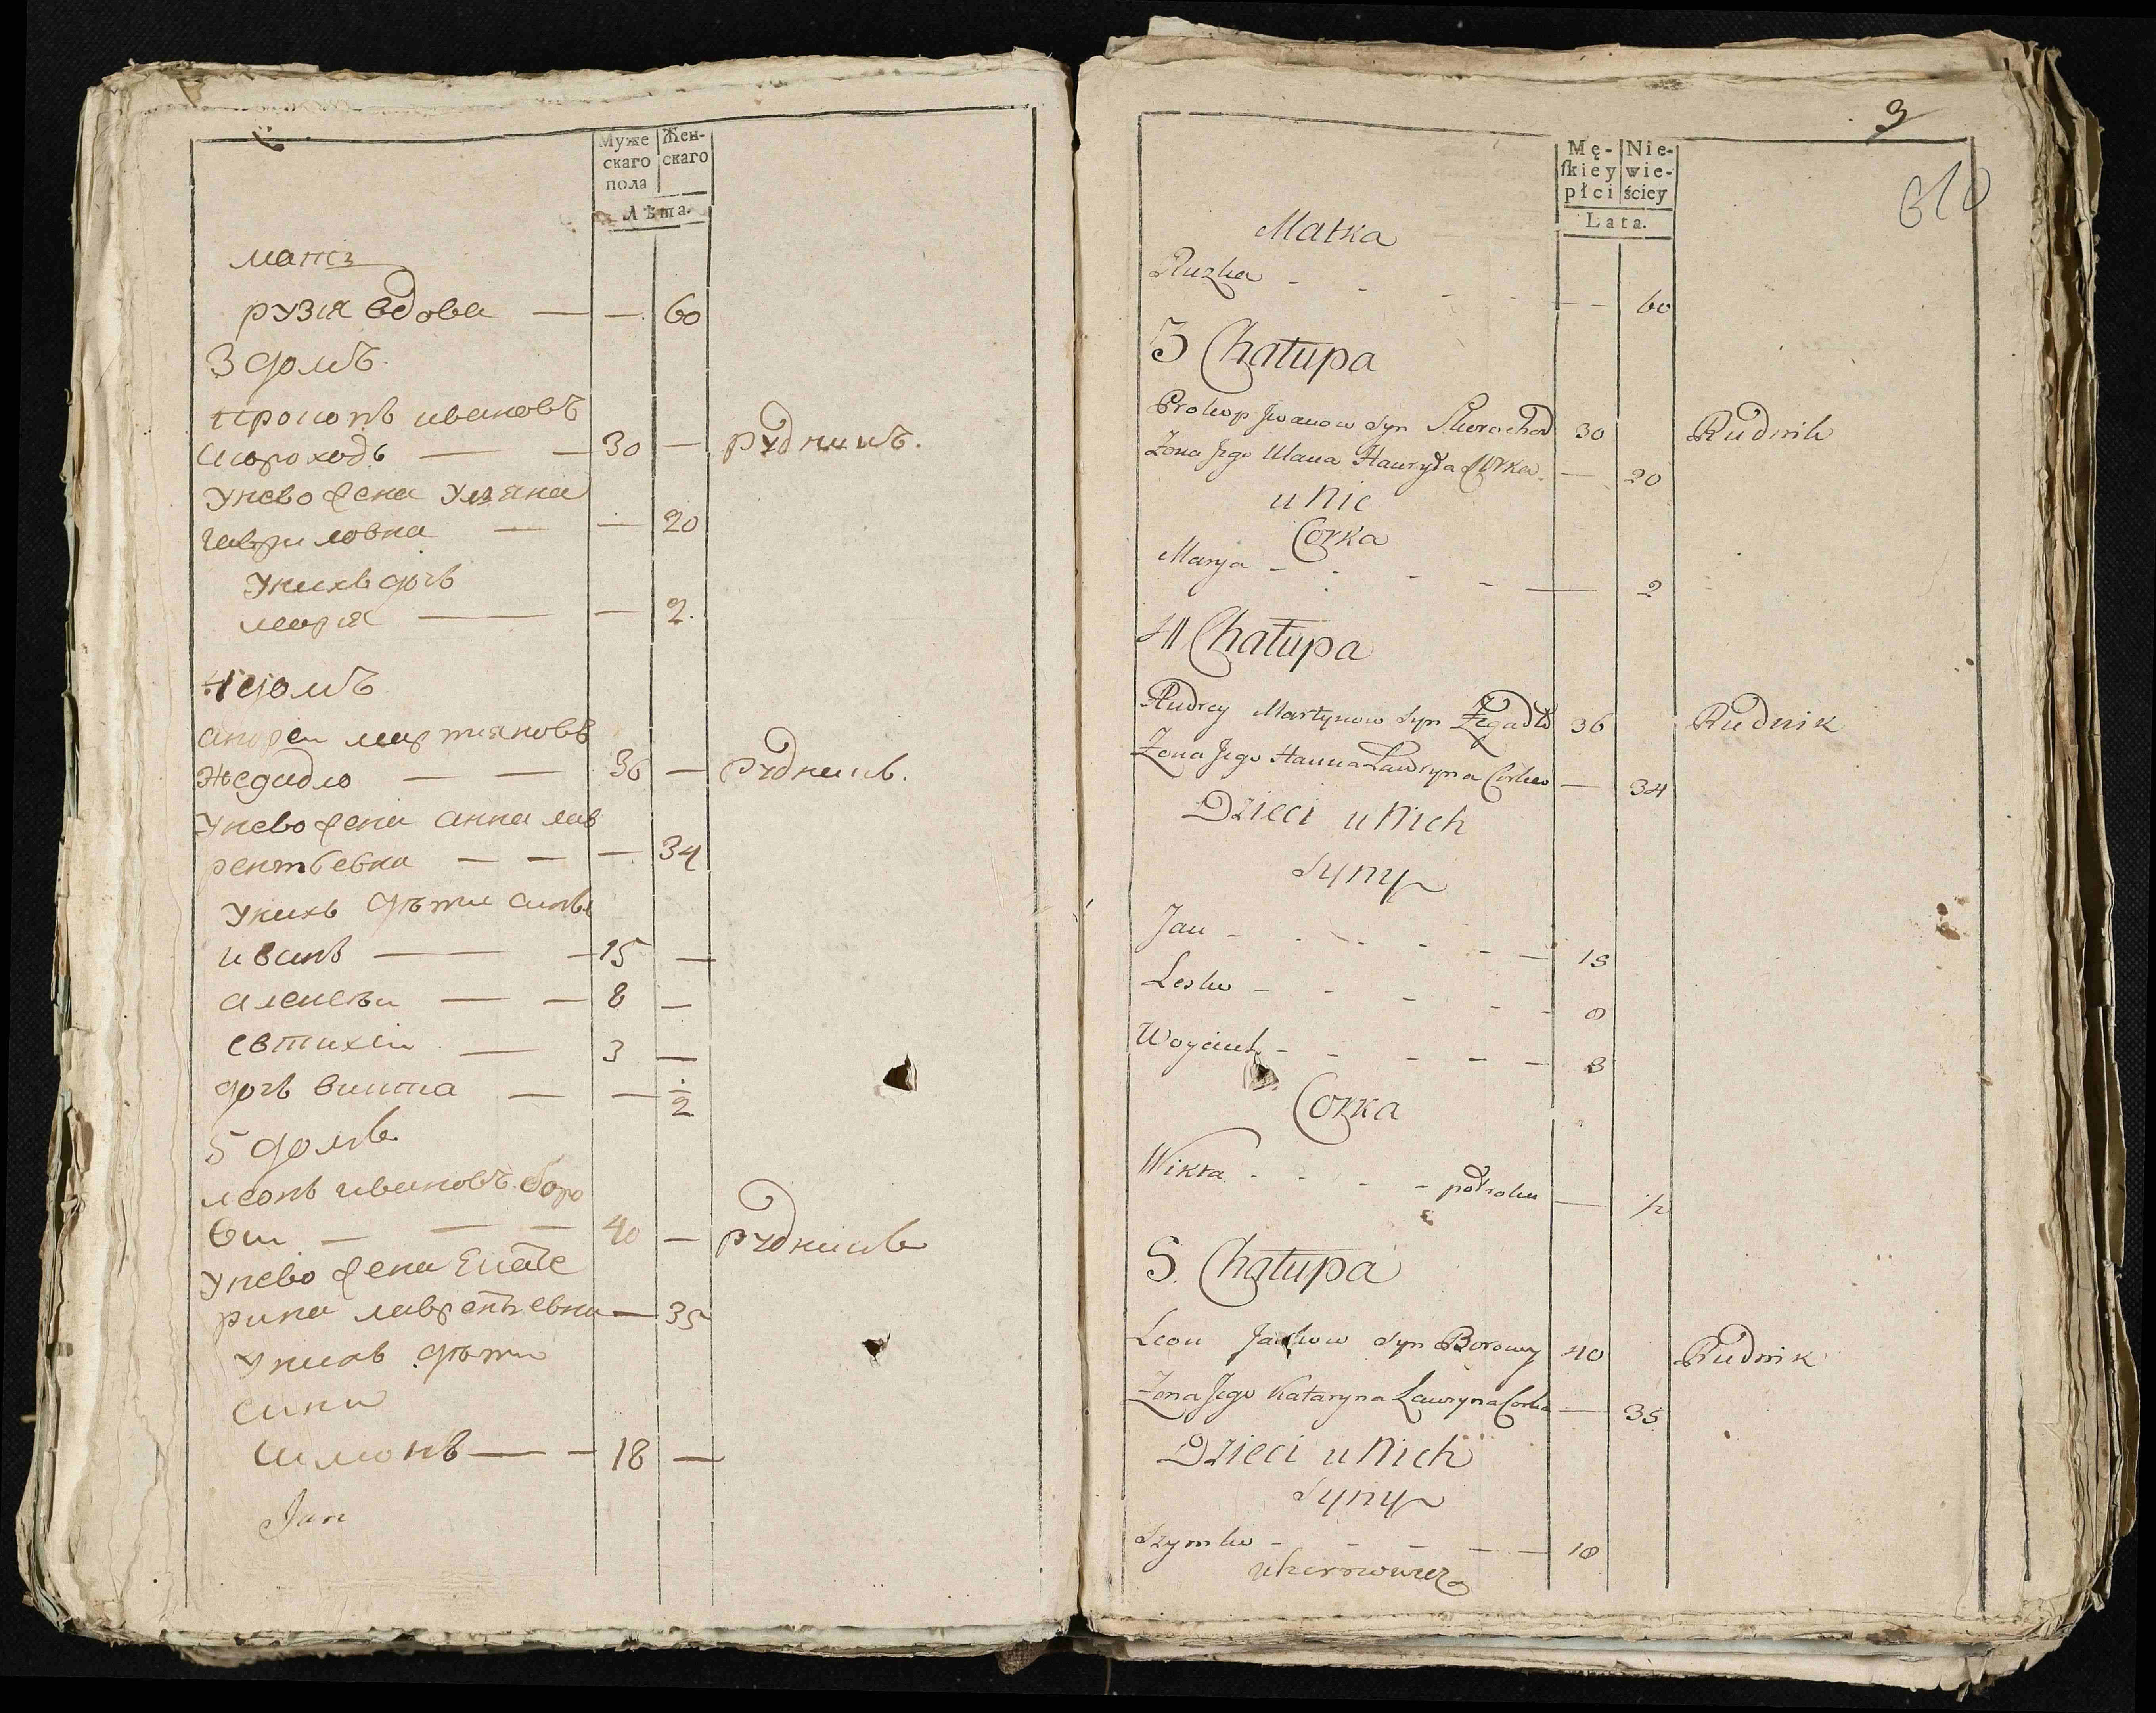 Муже Жен-
скаго скаго
пола
Лѣта.
мать
рузія вдова — — 60
3 домъ
прокопъ ивановъ
скороходъ — — 30 — рудникъ.
унево жена уліяна
гавриловна — — 20
унихъ дочь
марія — — 2.
4 домъ
андреи мартиновъ
жегадло — — 36 — рудникъ.
унево жена анна лав
рентьевна — — — 34
унихъ дѣти сыновья
иванъ — — 15 —
алексѣи — — 8 —
евтихіи — 3 —
дочь викта — — 1/2
5 домъ
леонъ ивановъ боро
вии — — — 40 — рудникъ
унево жена Екате
рина лаврентьевна — 35
унихъ дѣти
сыни
шмонъ — — 18 —
Jan
3
610
Mę- Nie-
ſkiey wie-
płci ściey
Lata.
Matka
Ruzka - - - - — — 60
3 Chałupa
Prokop Jwanow Syn Skorochod 30 Rudnik
Żona Jego Ulana Hauryła Corka — 20
u Nic
Corka
Marja - - - - — 2
4 Chałupa
Andrey Martynow Syn Żegadło 36 Rudnik
Żona Jego Hanna Lawryna Corka — 34
Dzieci u Nich
Syny
Jan - - - - - — 15
Lesko - - - - - 8
Woyciech - - - - — 3
Corka
Wikta - - - - poł roku — 1/2
5. Chałupa
Leon Jankow Syn Borowy 40 Rudnik
Żona Jego Kataryna Lawryna Corka — 35
Dzieci u Nich
Syny
Szymko - - - - — 18